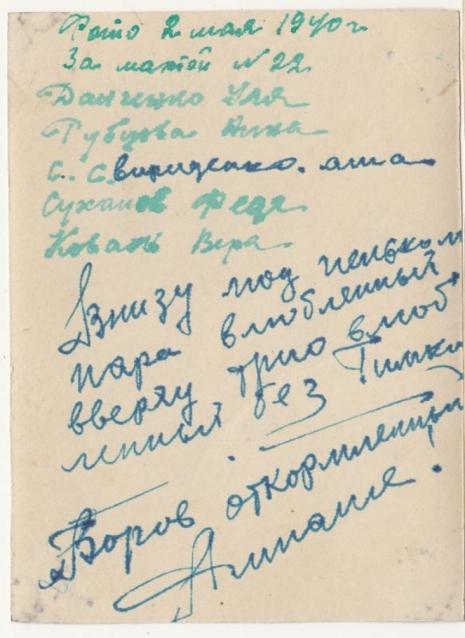 Фото 2 мая 1940 г
За мактой N 22
Данченко Уля
Губцова Анна
С. С. Вириденко. аша
Суханов Федя
Коваль Вера
Внизу под пеньком
пара влюбленный
вверху трио влюб
ленный без Тимки
Боров откормленный!